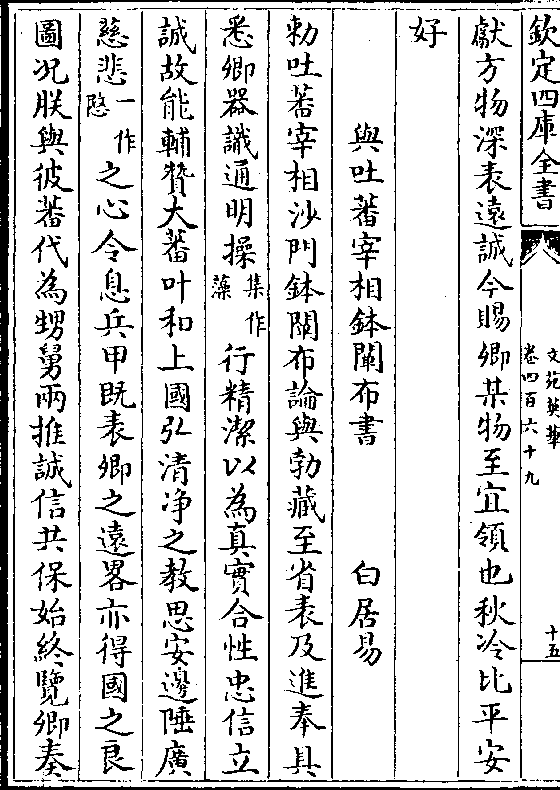 欽定四庫全書
文苑英華
卷四百六十九
十五
獻方物深表遠誠今賜卿某物至宜領也秋冷比平安
好
與吐蕃宰相鉢闡布書 白居易
勅吐蕃宰相沙門鉢闡布論與勃藏至省表及進奉具
悉卿器識通明操集作藻行精潔以為真實合性忠信立
誠故能輔贊大蕃叶和上國弘清浄之教思安邊陲廣
慈悲一作愍之心令息兵甲既表卿之遠畧亦得國之良
圖況朕與彼蕃代為甥舅兩推誠信共保始終覽卿奏